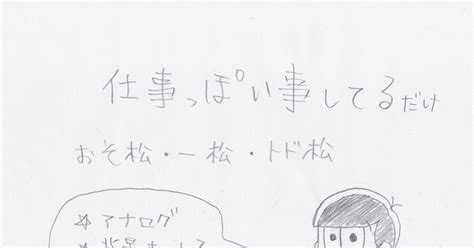 仕事っぽい事してるだけ
おそ松・一松・トド松
☆アナログ